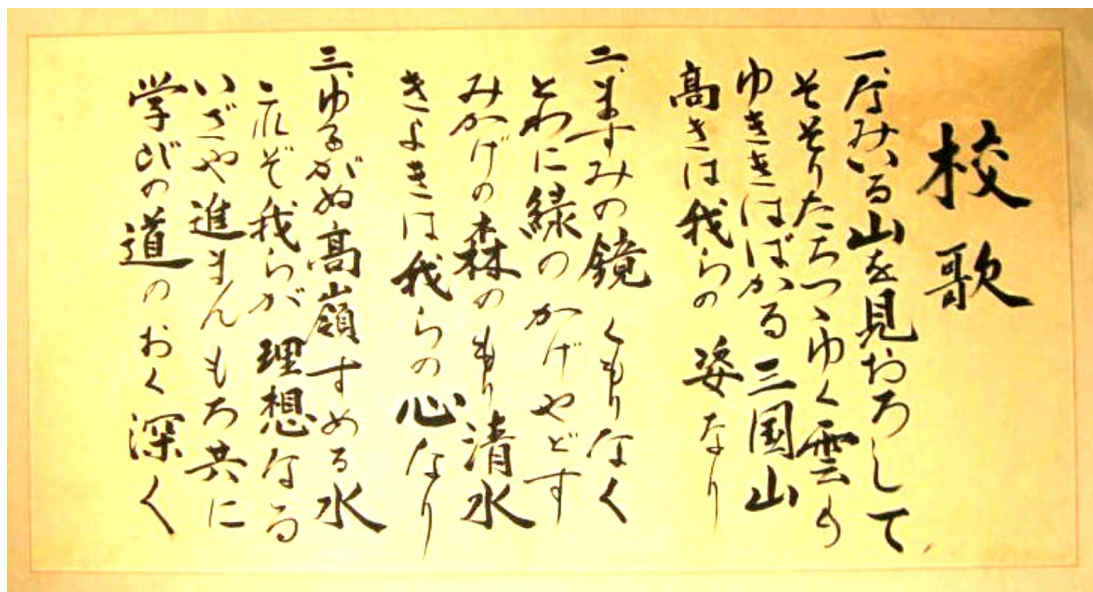 校歌
一、なみいる山を見おろして
そそりたちつゝゆく雲の
ゆききはばかる三国山
高きは我らの姿なり
二、ますみの鏡 くもりなく
とわに緑のかげやどす
みかげの森のもり清水
きよきは我らの心なり
三、ゆるがぬ高嶺すめる水
これぞ我らが理想なる
いざや進まんもろ共に
学びの道のおく深く